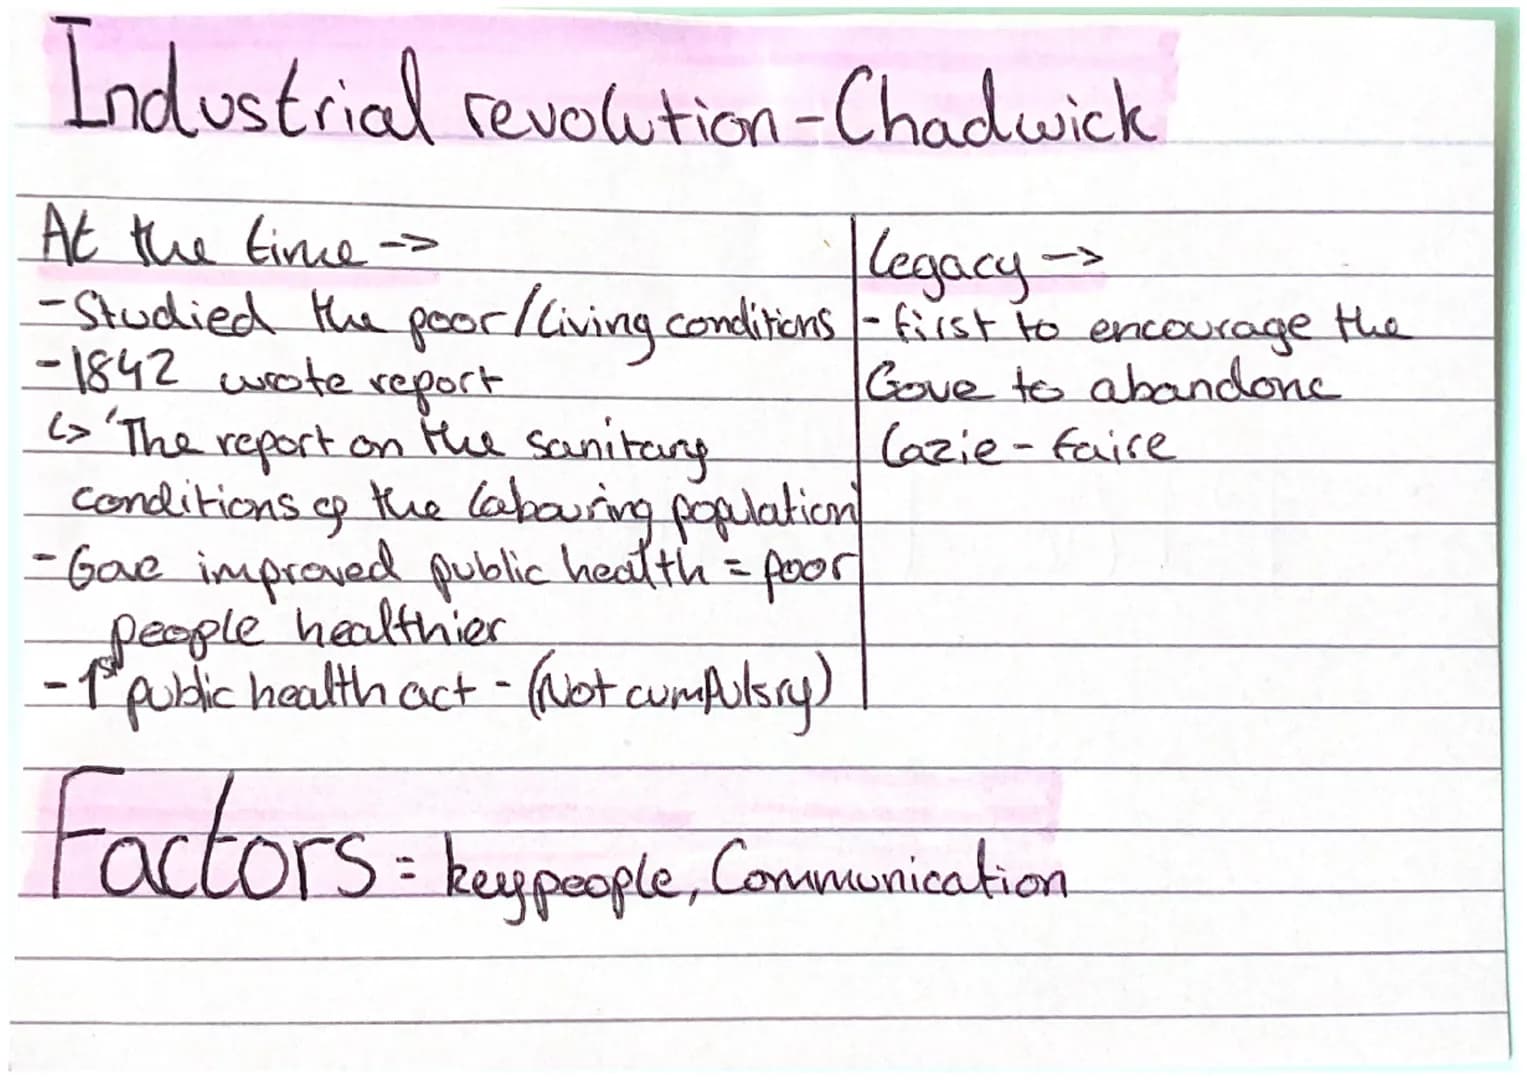 Industrial revolution - Chadwick
At the time ->
- Studied the poor/living conditions
- 1842 wrote report
↳ 'The report on the sanitary
conditions of the labouring population'
- Gove improved public health = poor
people healthier
- 1st public health act - (Not cumpulsry)
Legacy ->
- first to encourage the
Gove to abandone
lazie-faire
Factors = key people, Communication